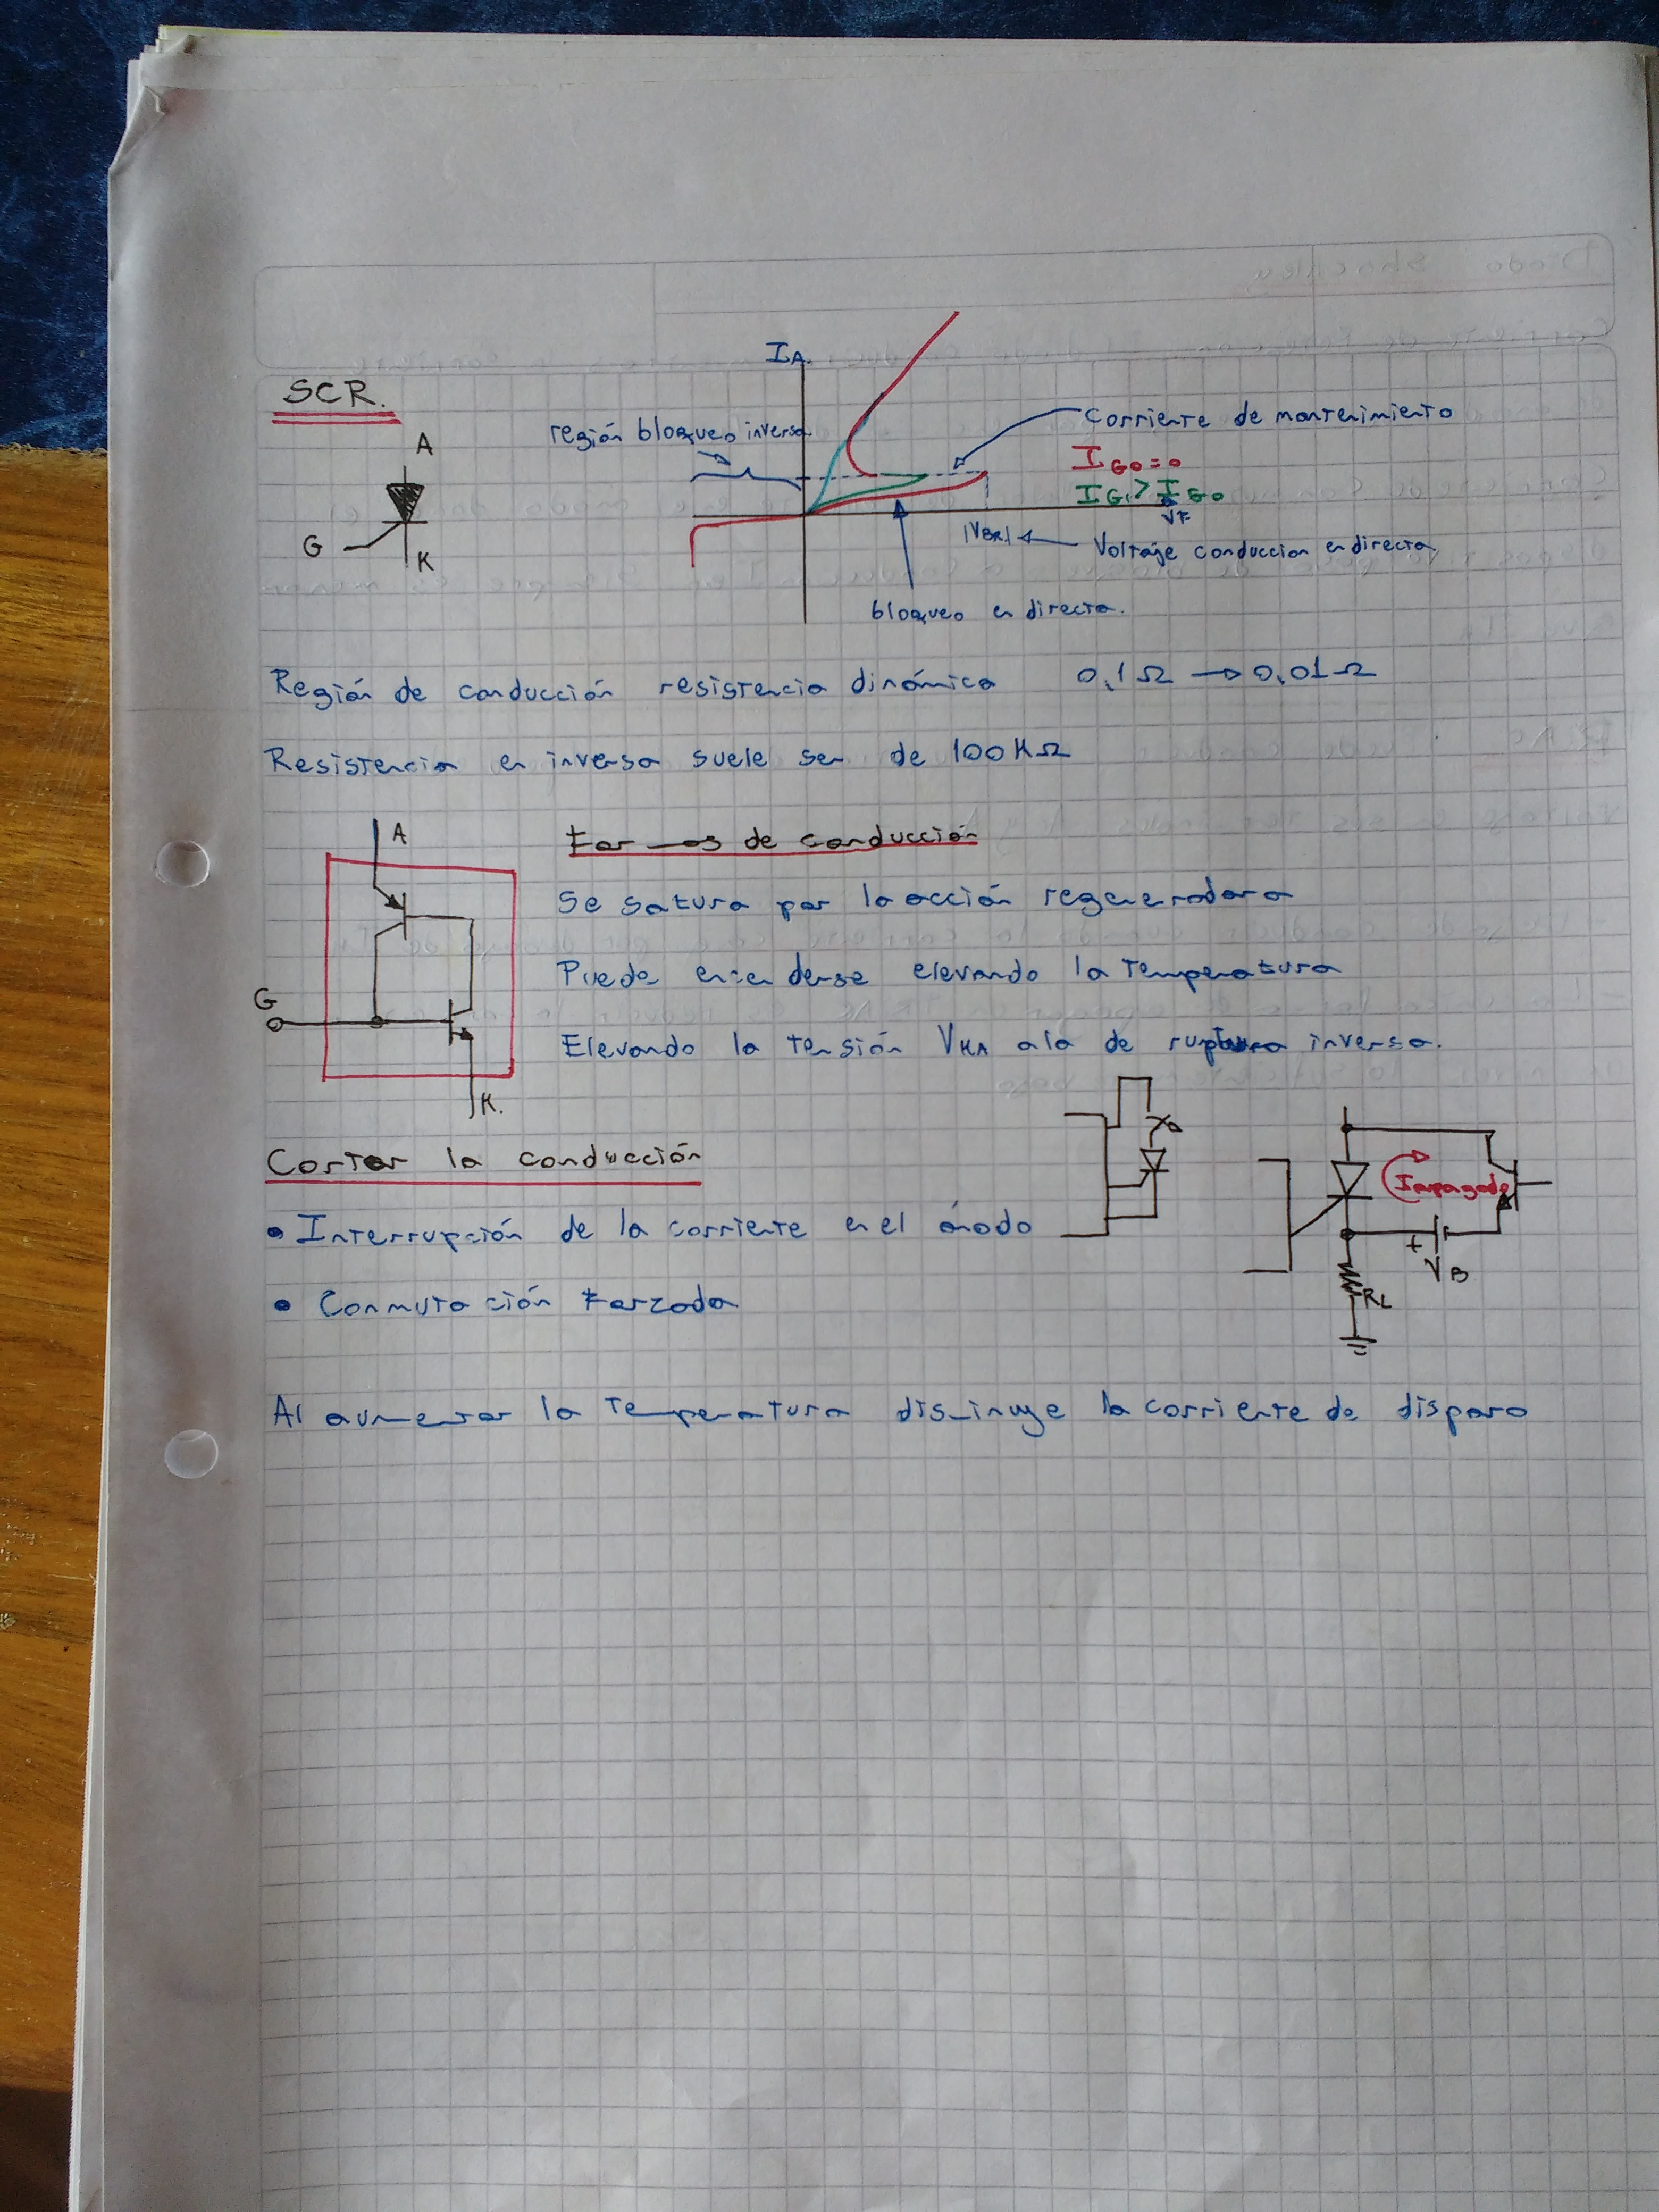 SCR.
A
G
K
IA.
región bloqueo inverso.
Corriente de mantenimiento
IG0=0
IG1>IG0
VF
|VBR|
Voltaje conduccion en directa
bloqueo en directa.
Región de conducción resistencia dinámica 0,1Ω → 0,01Ω
Resistencia en inversa suele ser de 100KΩ
A
G
K.
Formas de conducción
Se satura por la acción regeneradora
Puede encenderse elevando la temperatura
Elevando la tensión VKA a la de ruptura inversa.
Cortar la conducción
• Interrupción de la corriente en el ánodo
• Conmutación Forzada
Iapagado
+
VB
RL
Al aumentar la temperatura disminuye la corriente de disparo